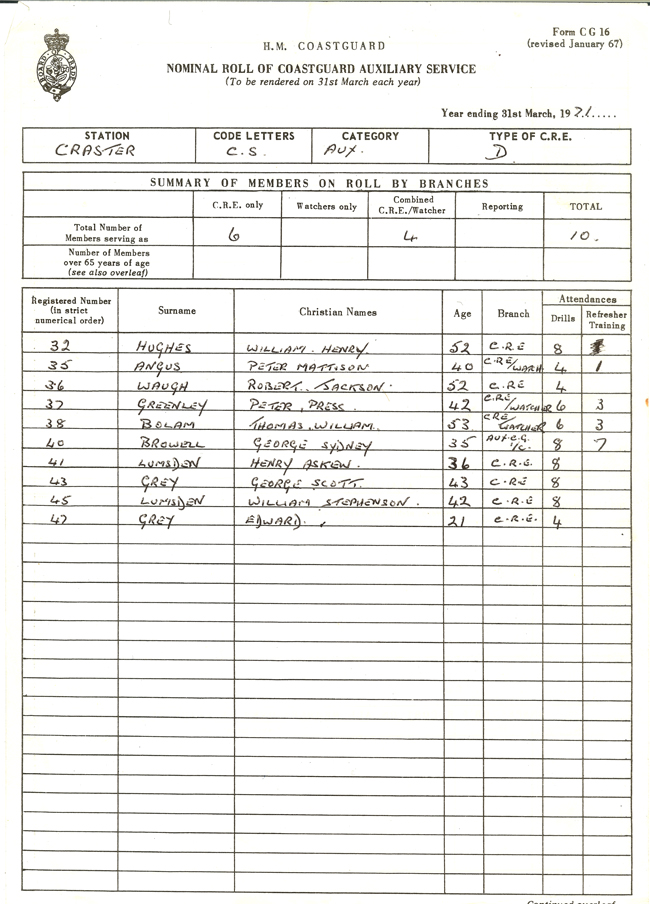 Form C G 16
(revised January 67)
H.M. COASTGUARD
NOMINAL ROLL OF COASTGUARD AUXILIARY SERVICE
(To be rendered on 31st March each year)
Year ending 31st March, 1971.....
STATION CODE LETTERS CATEGORY TYPE OF C.R.E.
CRASTER C.S. AUX. D
SUMMARY OF MEMBERS ON ROLL BY BRANCHES
C.R.E. only Watchers only Combined C.R.E./Watcher Reporting TOTAL
Total Number of Members serving as 6 4 10.
Number of Members over 65 years of age (see also overleaf)
Registered Number (in strict numerical order) Surname Christian Names Age Branch Attendances Drills Refresher Training
32 HUGHES WILLIAM. HENRY. 52 C.R.E 8
35 ANGUS PETER MATTISON 40 C.RE/WARH 4 1
36 WAUGH ROBERT. JACKSON. 52 C.RE 4
37 GREENLEY PETER, PRESS. 42 C.RE/WATCHER 6 3
38 BOLAM THOMAS, WILLIAM. 53 CRE/WATCHER 6 3
40 BROWELL GEORGE SYDNEY 35 AUX.C.G. I/C. 8 7
41 LUMSDEN HENRY ASKEW. 36 C.R.E. 8
43 GREY GEORGE SCOTT. 43 C.RE 8
45 LUMSDEN WILLIAM STEPHENSON. 42 C.R.E 8
47 GREY EDWARD. 21 C.R.E. 4
Continued overleaf